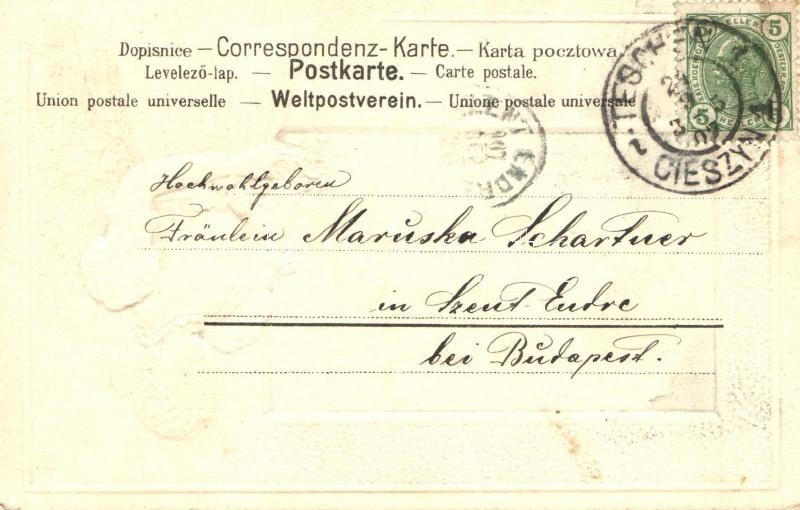 Dopisnice — Correspondenz-Karte. — Karta pocztowa.
Levelező-lap. — Postkarte. — Carte postale.
Union postale universelle — Weltpostverein. — Unione postale universale
5 HELLER 5
5 HELLER
TESCHEN 1
5 07
CIESZYN 1
907
Hochwohlgeboren
Fräulein Maruska Schartner
in Szent-Endre
bei Budapest.